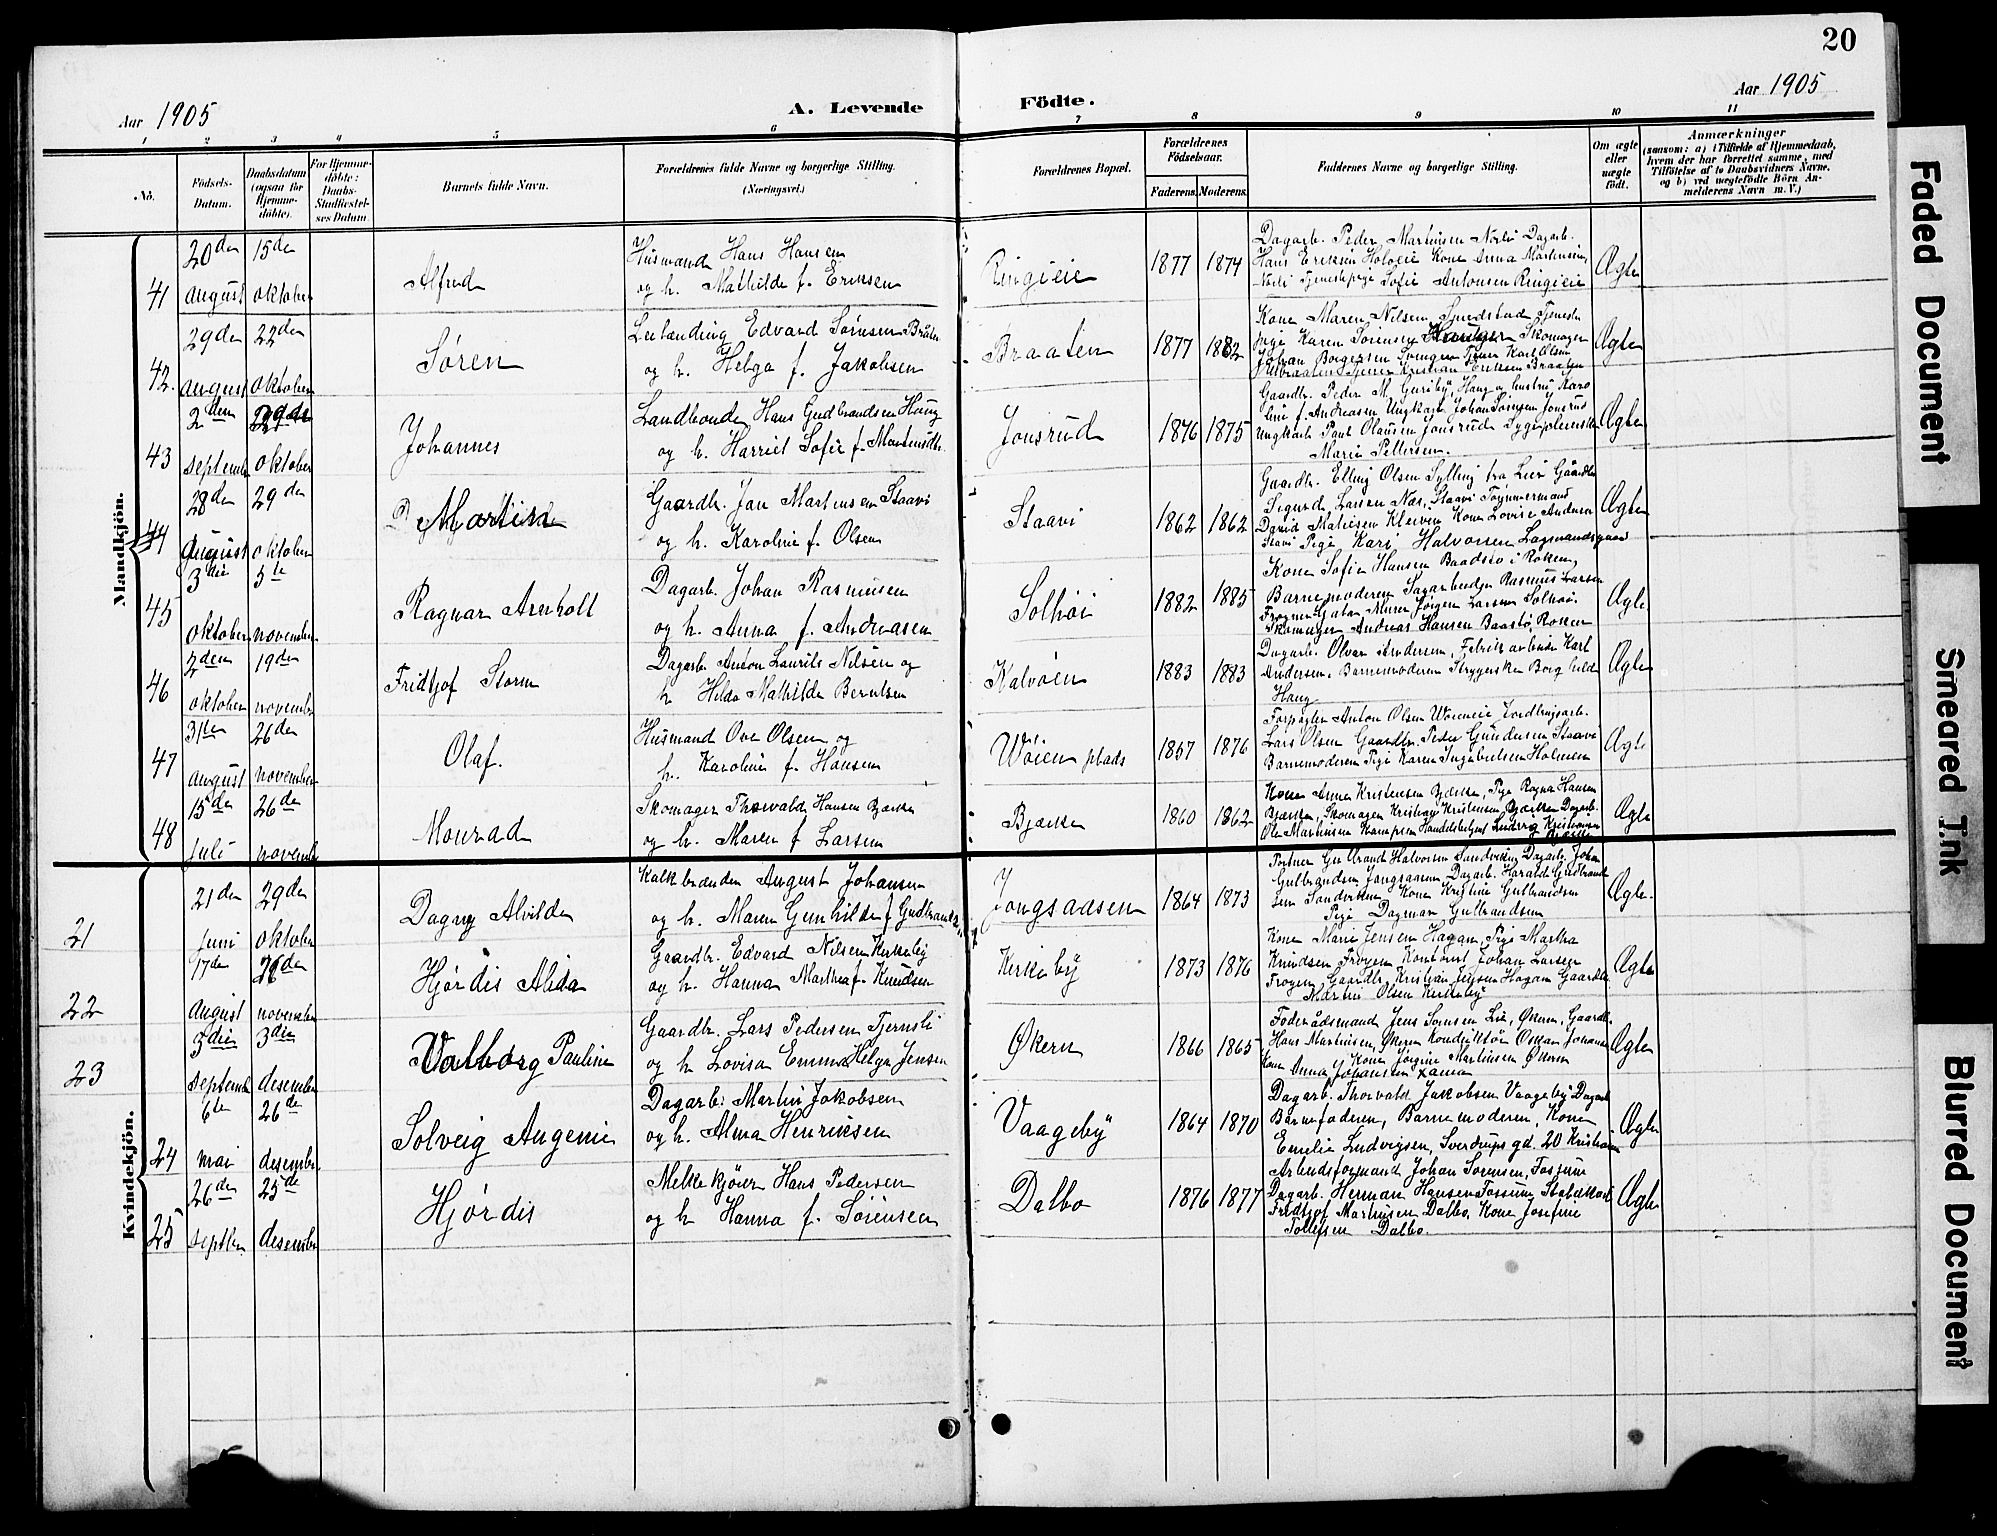 20
Aar 1905
A. Levende Födte.
Aar 1905
1 2 3 4 5 6 7 8 9 10 11
No.
Födsels-Datum.
Daabsdatum (ogsaa for Hjemmedöbte).
For Hjemmedöbte: Daabs-Stadfæstelses Datum
Barnets fulde Navn.
Forældrenes fulde Navne og borgerlige Stilling. (Næringsvei.)
Forældrenes Bopæl.
Forældrenes Födselsaar.
Faderens. Moderens.
Faddernes Navne og borgerlige Stilling.
Om ægte eller uægte födt.
Anmærkninger
(saasom: a) i Tilfælde af Hjemmedaab,
hvem der har forrettet samme, med
Tilföielse af to Daabsvidners Navne,
og b) ved uægtefödte Börn An-
melderens Navn m. V.)
Mandkjön.
41 20de august 15de oktober Alfred
Husmand Hans Hansen
og h. Mathilde f. Eriksen
Ringieie 1877 1874
Dagarb. Peder Martinsen Dagarb.
Hans Eriksen Kone Anna Martinsen,
Sofie Antonsen Ringieie
Ægte
42. 29de august 22de oktober Søren
Leilending Edvard Sørensen Braaten
og h. Helga f. Jakobsen
Braaten 1877 1882
Kone Maren Nilsen Tjeneste
pige Karen Sørensen Skomager
Johan Borgersen Karl Olsen
Kristian Eriksen Braaten
Ægte
43 2den september 29de oktober Johannes
Landhandl. Hans Gudbrandsen Haug
og h. Harriet Sofie f. Mortensdtr.
Jonsrud 1876 1875
Gaardbr. Peder M. Haug og hustru Karo
line f. Andreasen Ungkarl Johan Sørensen Jonsrud
Ungkarl Paul Olausen Jonsrud Sygepleierske
Marie Pettersen.
Ægte
44 28de august 29de oktober Martin
Gaardbr. Jan Martinsen Staavi
og h. Karoline f. Olsen
Staavi 1862 1862
Gaardbr. Elling Olsen Sylling fra Lier Gaardbr.
Sigurd Larsen Næs, Staavi Tømmermand
David Mathisen Kleiven Kone Lovise Andersen
Stavi Pige Kari Halvorsen Lagmandsgaard
Ægte
45 3die oktober 5te november Ragnar Arnholt
Dagarb. Johan Rasmusen
og h. Anna f. Andreasen
Solhøi 1882 1885
Kone Sofie Hansen Baadstø i Røken,
Barnemoderen Rasmus Larsen
Murer Jørgen Larsen Solhøi.
Skomager Andreas Hansen Baastø Røken
Ægte
46 2den oktober 19de november Fridtjof Storm
Dagarb. Anton Laurits Nilsen og
h. Hilda Mathilde Berntsen
Kalvøen 1883 1883
Dagarb. Olvar Andersen, Fabrikarbeider Karl
Andersen, Barnemoderen Strygerske Borghild
Haug
Ægte
47 31te august 26de november Olaf.
Husmand Ove Olsen og
h. Karoline f. Hansen
Wøien plads 1857 1876
Forpagter Anton Olsen Jordbrugsarb.
Lars Olsen Gaardbr. Peder Gundersen Staavi
Barnemoderen Pige Karen Ingebretsen Holmen
Ægte
48 15de juli 26de november Monrad
Skomager Thorvald Hansen Bjerke
og h. Maren f Larsen
Bjærke 1860 1862
Kone Anna Kristensen Bjærke, Pige Ragna Hansen
Bjærke, Skomager Kristian Kristensen, Bjærke Dagarb.
Ole Martinsen Handelsbetjent Ludvig Kristiansen
Bjærke
Ægte
Kvindekjön.
21 21de juni 29de oktober Dagny Alvilde
Kalkbrænder August Johansen
og h. Maren Gunhilde f Gudbrands.
Jongsaasen 1864 1873
Portner Gulbrand Halvorsen Sandviken, Dagarb. Johan
Gulbrandsen Jongsaasen Dagarb. Harald Gudbrand
sen Sandviken Kone Kristine Gulbrandsen
Pige Dagmar Gulbrandsen
Ægte.
22 17de august 26de november Hjørdis Alida
Gaardbr. Edvard Nilsen Kirkeby
og h. Hanna Marthea f. Knudsen
Kirkeby 1873 1876
Kone Marie Jensen Hagan, Pige Martha
Knudsen Frogen Kontorist Johan Larsen
Frogen Gaardbr. Kristian Jensen Hagan Gaardbr.
Martin Olsen Kirkeby
Ægte
23 5die september 3die desember Valborg Pauline
Gaardbr. Lars Pedersen Tjernsli
og h Lovisa Emma Helga Jensen
Økern 1866 1865
Foderådsmand Jens Sørensen Lie, Økern, Gaardbr.
Hans Martinsen, Økern Konduktør Oskar Johansen
Kone Jørgine Martinsen Økern
Kone Anna Johansen
Ægte
24 6te mai 26de desember Solveig Augenie
Dagarb: Martin Jakobsen
og h. Alma Henriksen
Vaageby 1864 1870
Dagarb. Thorvald Jakobsen Vaageby Dagarb
Barnefaderen, Barnemoderen, Kone
Emelie Ludvigsen, Sverdrups gd. 20 Kristiania
Ægte
25 26de septbr. 25de desember Hjørdis
Melkekjører Hans Pedersen
og h Hanna f. Sörensen
Dalbo 1876 1877
Arbeidsformand Johan Sørensen, Fossum
Dagarb. Herman Hansen Fossum, Staldkarl
Fridtjof Martinsen Dalbo, Kone Josefine
Tollefsen Dalbo.
Ægte
Faded Document
Smeared Ink
Blurred Document